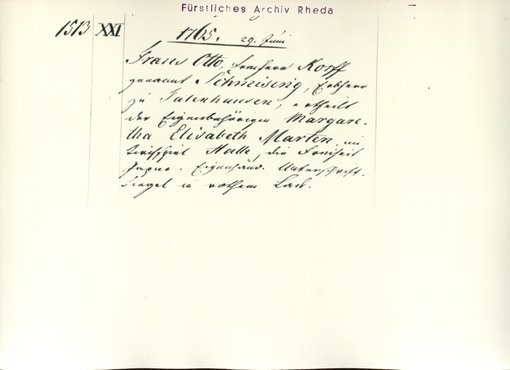 Fürstliches Archiv Rheda
1513 XXI 1765. 29. Juni
Franz Otto, Freiherr Korff
genannt Schmeising, Erbherr
zu Tatenhausen, ertheilt
der Eigenbehörigen Margare-
tha Elisabeth Marten, im
Kirchspiel Halle, die Freiheit
Papier. Eigenhänd. Unterschrift.
Siegel in rothem Lack.